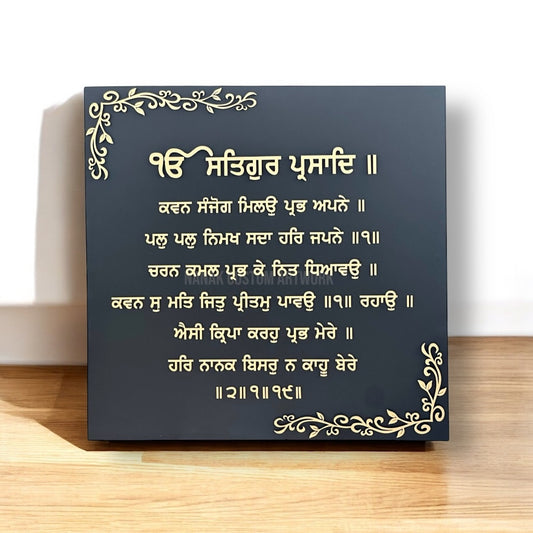 ੴ ਸਤਿਗੁਰ ਪ੍ਰਸਾਦਿ ॥
ਕਵਨ ਸੰਜੋਗ ਮਿਲਉ ਪ੍ਰਭ ਅਪਨੇ ॥
ਪਲੁ ਪਲੁ ਨਿਮਖ ਸਦਾ ਹਰਿ ਜਪਨੇ ॥੧॥
ਚਰਨ ਕਮਲ ਪ੍ਰਭ ਕੇ ਨਿਤ ਧਿਆਵਉ ॥
NANAK CUSTOM ARTWORK
ਕਵਨ ਸੁ ਮਤਿ ਜਿਤੁ ਪ੍ਰੀਤਮੁ ਪਾਵਉ ॥੧॥ ਰਹਾਉ ॥
ਐਸੀ ਕ੍ਰਿਪਾ ਕਰਹੁ ਪ੍ਰਭ ਮੇਰੇ ॥
ਹਰਿ ਨਾਨਕ ਬਿਸਰੁ ਨ ਕਾਹੂ ਬੇਰੇ
॥੨॥੧॥੧੯॥